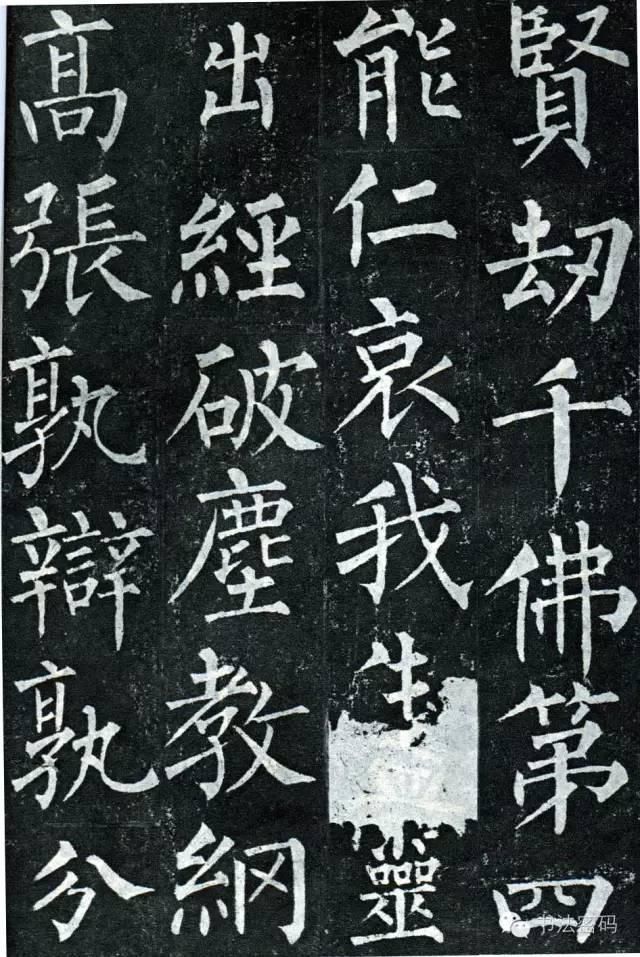 賢刧千佛第四
能仁哀我生靈
出經破塵教網
髙張孰辯孰分
书法密码